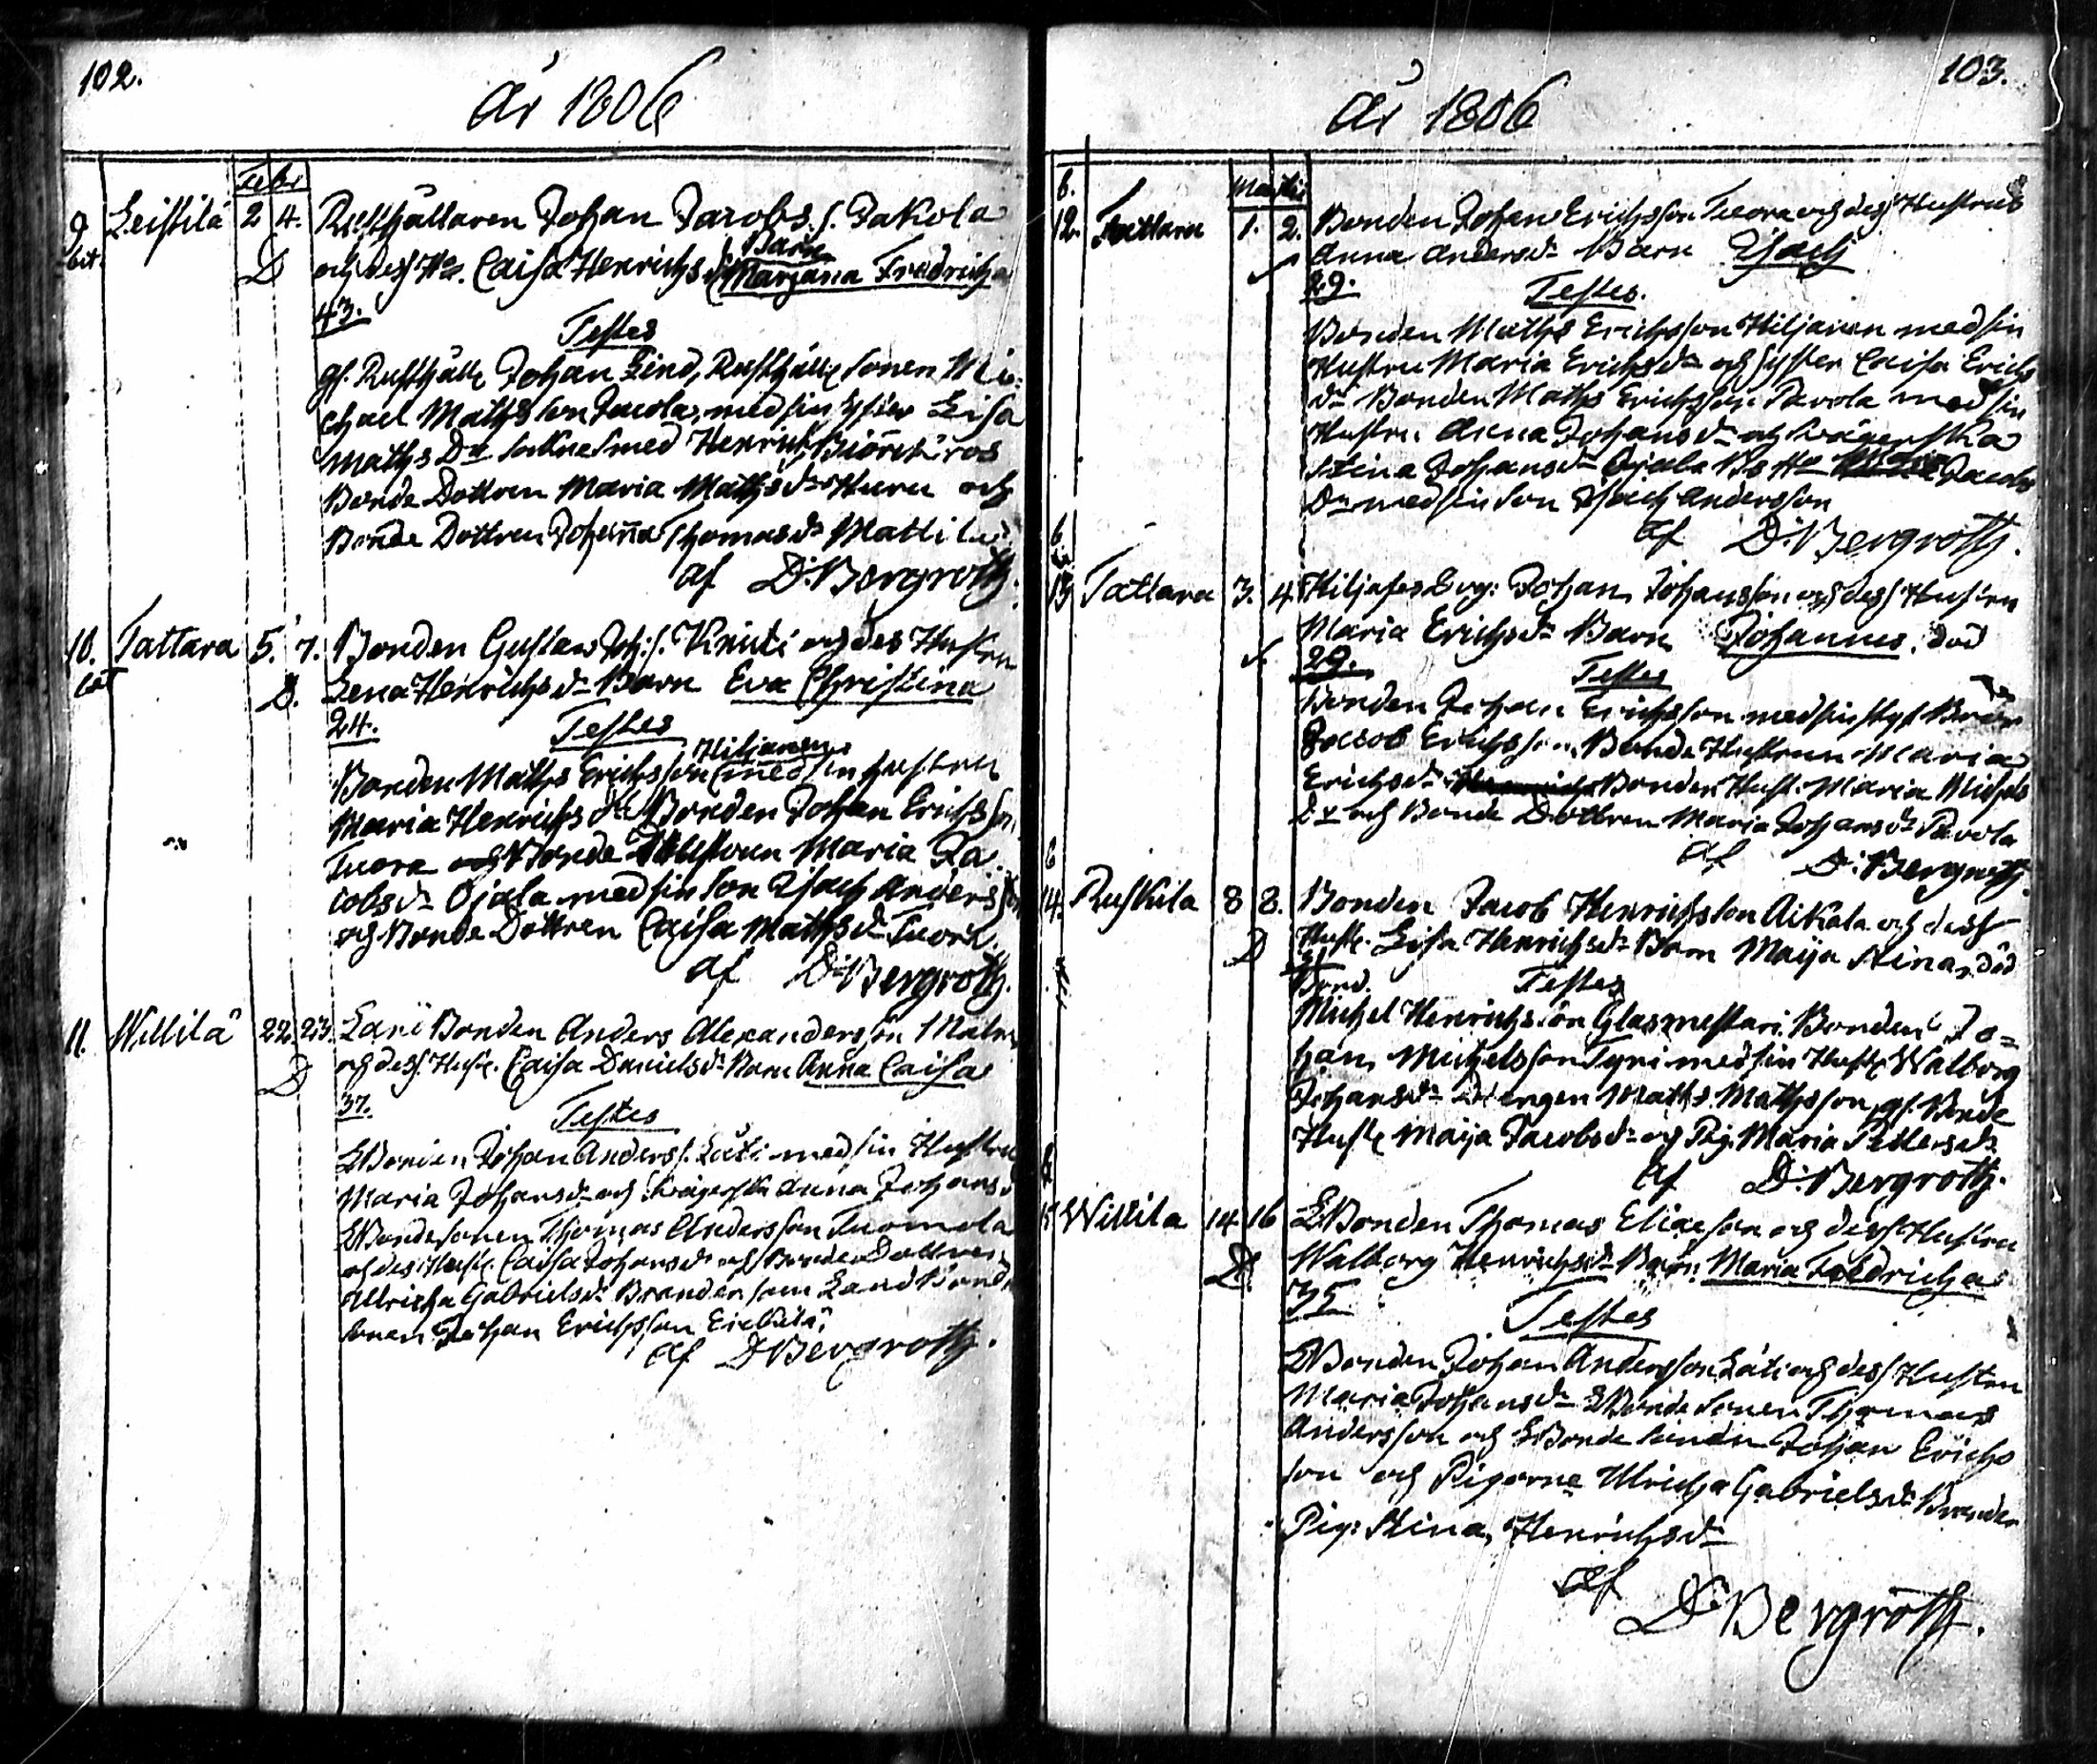 102.
År 1806
Febr
9 Leistilä 2 4. Rusthållaren Johan Jacobs s. Jakola
Barn
och dess Ho. Caisa Henrichs dr Marjana Fredricha
D
43.
Testes
gl. Rusthåll Johan Lind, Rusthåll sonen Mi-
chael Mathsson Jacola, med sin syster Lisa
Maths Dr Henrich Biörck
Bonde Dottren Maria Maths dr och
Bonde Dottren Johanna Thomas dr Mattila
af D. Bergroth.
10. Tattara 5. 7. Bonden Gustav Joh: s. Knuti och des Hustru
D. Lena Henrichs dr Barn Eva Christina
24.
Testes
Hiljanen
Bonden Maths Erichsson med sin hustru
Maria Henrichs dr Bonden Johan Erichsson
Tuora och Bonde Hustrun Maria Ja
cobs dr Ojala med sin son Isach Andersson
och Bonde Dottren Caisa Maths dr Tuora.
af D. Bergroth.
11. Willilä 22. 23. Bonden Anders Alexandersson
och dess Hust. Caisa Daniels dr Barn Anna Caisa
D
37.
Testes
LBonden Johan Anders s. Läti med sin Hustru
Maria Johans dr och Swägerska Anna Johans d
LBondesonen Thomas Andersson Tuomola
och des Hust. Caisa Johans dr och Bonde Dottren
Ullricha Gabriels dr Brander samt Land Bonde
sonen Johan Erichsson
af D Bergroth.
103.
År 1806
Martii
12. Tattara 1. 2. Bonden Johan Erichsson Tuora och dess Hustrus
Anna Anders dr Barn Isach
29.
Testes.
Bonden Maths Erichsson Hiljanen med sin
Hustru Maria Erichs dr och syster Caisa Erichs
dr Bonden Maths Erichsson Pavola med sin
Hustru Anna Johans dr och swägerska
Stina Johans dr Ojala Bs Ho Maria Jacobs
Dr med sin son Isach Andersson
af D: Bergroth.
13 Tattara 3. 4. Johan Johansson och dess Hustru
Maria Erichs dr Barn Johannes. död
29.
Testes
Bonden Johan Erichsson med sin
Jacob Erichsson, Bonde Hustrun Maria
Erichs dr Bonden Hust. Maria Michels
dr och Bonde Dottren Maria Johans dr Pavola
af D: Bergroth.
14. Ruskila 8 8. Bonden Jacob Henrichsson Aikala och dess
D Hust. Lisa Henrichs dr Barn Maija Stina, död
31
Bond. Testes
Michel Henrichsson Glasmestari Bonden Jo=
han Michelsson Tyni med sin Hust Walborg
Johans dr Drengen Maths Mathsson, gl. Bonde
Hust Maija Jacobs dr och Pig. Maria Pedters dr
af D: Bergroth.
15 Willila 14 16 LBonden Thomas Eliaeson och dess Hustru
D. Walborg Henrichs dr Barn Maria Fredricha
35
Testes
LBonden Johan Andersson Läti och dess Hustru
Maria Johans dr LBonde Sonen Thomas
Andersson och LBonde sonen Johan Erichs
son och Pigorne Ulricha Gabriels dr Brander
Pig: Stina Henrichs dr
af
D. Bergroth.